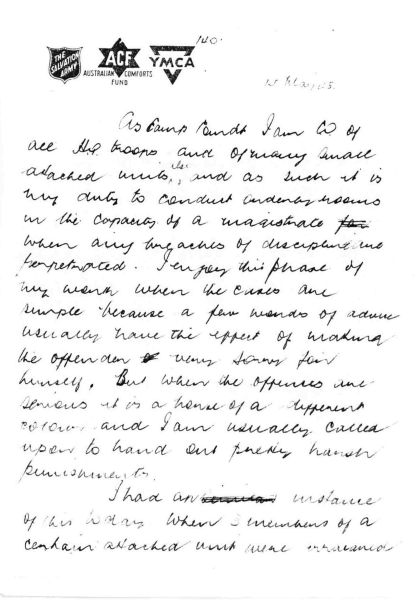 140.
THE SALVATION ARMY
ACF
AUSTRALIAN COMFORTS FUND
YMCA
1st May 45.
As Camp Comdt I am CO of
all H.Q. troops and of many small
attached units etc, and as such it is
my duty to conduct orderly rooms
in the capacity of a magistrate for
when any breaches of discipline are
perpetrated. I enjoy this phase of
my work when the cases are
simple because a few words of advice
usually have the effect of making
the offender very sorry for
himself. But when the offences are
serious it is a horse of a different
colour and I am usually called
upon to hand out pretty harsh
punishments.
I had an instance
of this today when 3 members of a
certain attached unit were arraigned